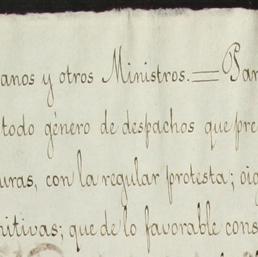 anos y otros Ministros.= Par
todo género de despachos que pre
uras, con la regular protesta; oig
nitivas; que de lo favorable cons